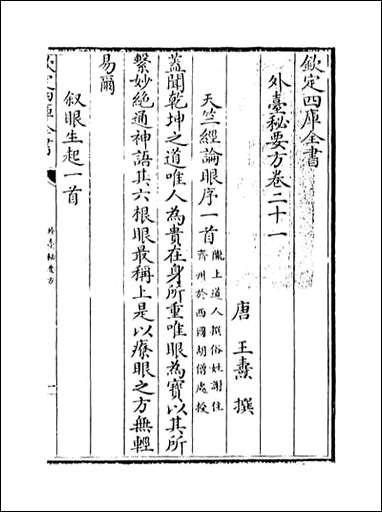 欽定四庫全書
外臺秘要方卷二十一
唐 王燾 撰
天竺經論眼序一首 隴上道人撰俗姓謝住
齊州於西國胡僧處授
蓋聞乾坤之道唯人為貴在身所重唯眼為寶以其所
繫妙絕通神語其六根眼最稱上是以療眼之方無輕
易爾
叙眼生起一首
欽定四庫全書
外臺秘要方
一